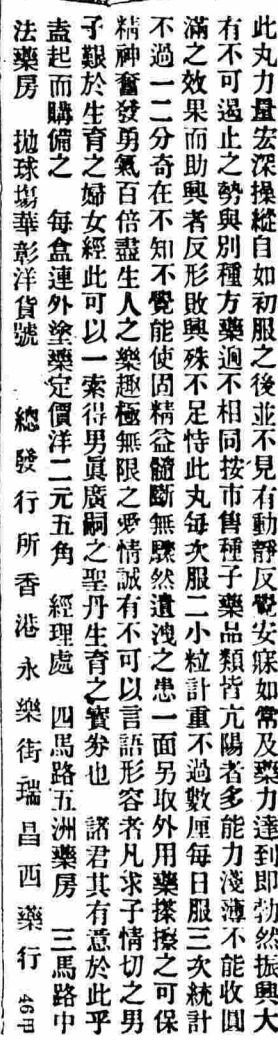 此丸力量宏深操縱自如初服之後並不見有動靜反覺安寐如常及藥力達到即勃然振興大
有不可遏止之勢與別種方藥迥不相同按市售種子藥品類皆亢陽者多能力淺薄不能收圓
滿之效果而助興者反形敗興殊不足恃此丸每次服二小粒計重不過數厘每日服三次統計
不過一二分奇在不知不覺能使固精益髓斷無驟然遺洩之患一面另取外用藥搽擦之可保
精神奮發勇氣百倍盡生人之樂趣極無限之愛情誠有不可以言語形容者凡求子情切之男
子艱於生育之婦女經此可以一索得男眞廣嗣之聖丹生育之寶劵也 諸君其有意於此乎
盍起而購備之 每盒連外塗藥定價洋二元五角 經理處 四馬路五洲藥房 三馬路中
法藥房 拋球塲華彰洋貨號 總發行所香港永樂街瑞昌西藥行 46甲